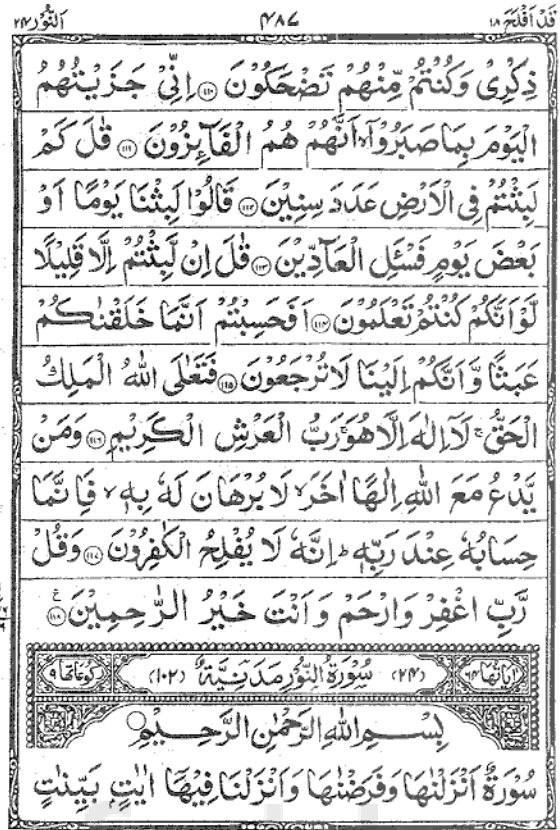 قَدْ اَفْلَحَ ۱۸ ۴۸۷ اَلنُّوْر ۲۴
ذِكْرِیْ وَكُنْتُمْ مِّنْهُمْ تَضْحَكُوْنَ ﴿۱۱۰﴾ اِنِّیْ جَزَیْتُهُمُ
الْیَوْمَ بِمَا صَبَرُوْۤا ۙ اَنَّهُمْ هُمُ الْفَآىِٕزُوْنَ ﴿۱۱۱﴾ قٰلَ كَمْ
لَبِثْتُمْ فِی الْاَرْضِ عَدَدَ سِنِیْنَ ﴿۱۱۲﴾ قَالُوْا لَبِثْنَا یَوْمًا اَوْ
بَعْضَ یَوْمٍ فَسْـَٔلِ الْعَآدِّیْنَ ﴿۱۱۳﴾ قٰلَ اِنْ لَّبِثْتُمْ اِلَّا قَلِیْلًا
لَّوْ اَنَّكُمْ كُنْتُمْ تَعْلَمُوْنَ ﴿۱۱۴﴾ اَفَحَسِبْتُمْ اَنَّمَا خَلَقْنٰكُمْ
عَبَثًا وَّ اَنَّكُمْ اِلَیْنَا لَا تُرْجَعُوْنَ ﴿۱۱۵﴾ فَتَعٰلَى اللّٰهُ الْمَلِكُ
الْحَقُّ ۚ لَاۤ اِلٰهَ اِلَّا هُوَ ۚ رَبُّ الْعَرْشِ الْكَرِیْمِ ﴿۱۱۶﴾ وَمَنْ
یَّدْعُ مَعَ اللّٰهِ اِلٰهًا اٰخَرَ ۙ لَا بُرْهَانَ لَهٗ بِهٖ ۙ فَاِنَّمَا
حِسَابُهٗ عِنْدَ رَبِّهٖ ؕ اِنَّهٗ لَا یُفْلِحُ الْكٰفِرُوْنَ ﴿۱۱۷﴾ وَقُلْ
رَّبِّ اغْفِرْ وَارْحَمْ وَاَنْتَ خَیْرُ الرّٰحِمِیْنَ ﴿۱۱۸﴾ ع
اٰیاتها ۶۴ (۲۴) سُوْرَةُ النُّوْرِ مَدَنِیَّةٌ (۱۰۲) ركوعاتها ۹
بِسْمِ اللّٰهِ الرَّحْمٰنِ الرَّحِیْمِ
سُوْرَةٌ اَنْزَلْنٰهَا وَفَرَضْنٰهَا وَاَنْزَلْنَا فِیْهَاۤ اٰیٰتٍۭ بَیِّنٰتٍ